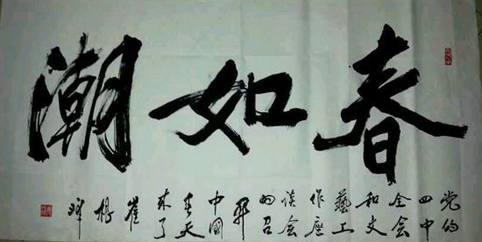 春如潮
党的
四中
全会
和文
藝工
作座
谈会
的召
開
中國
春天
来了
崔
根